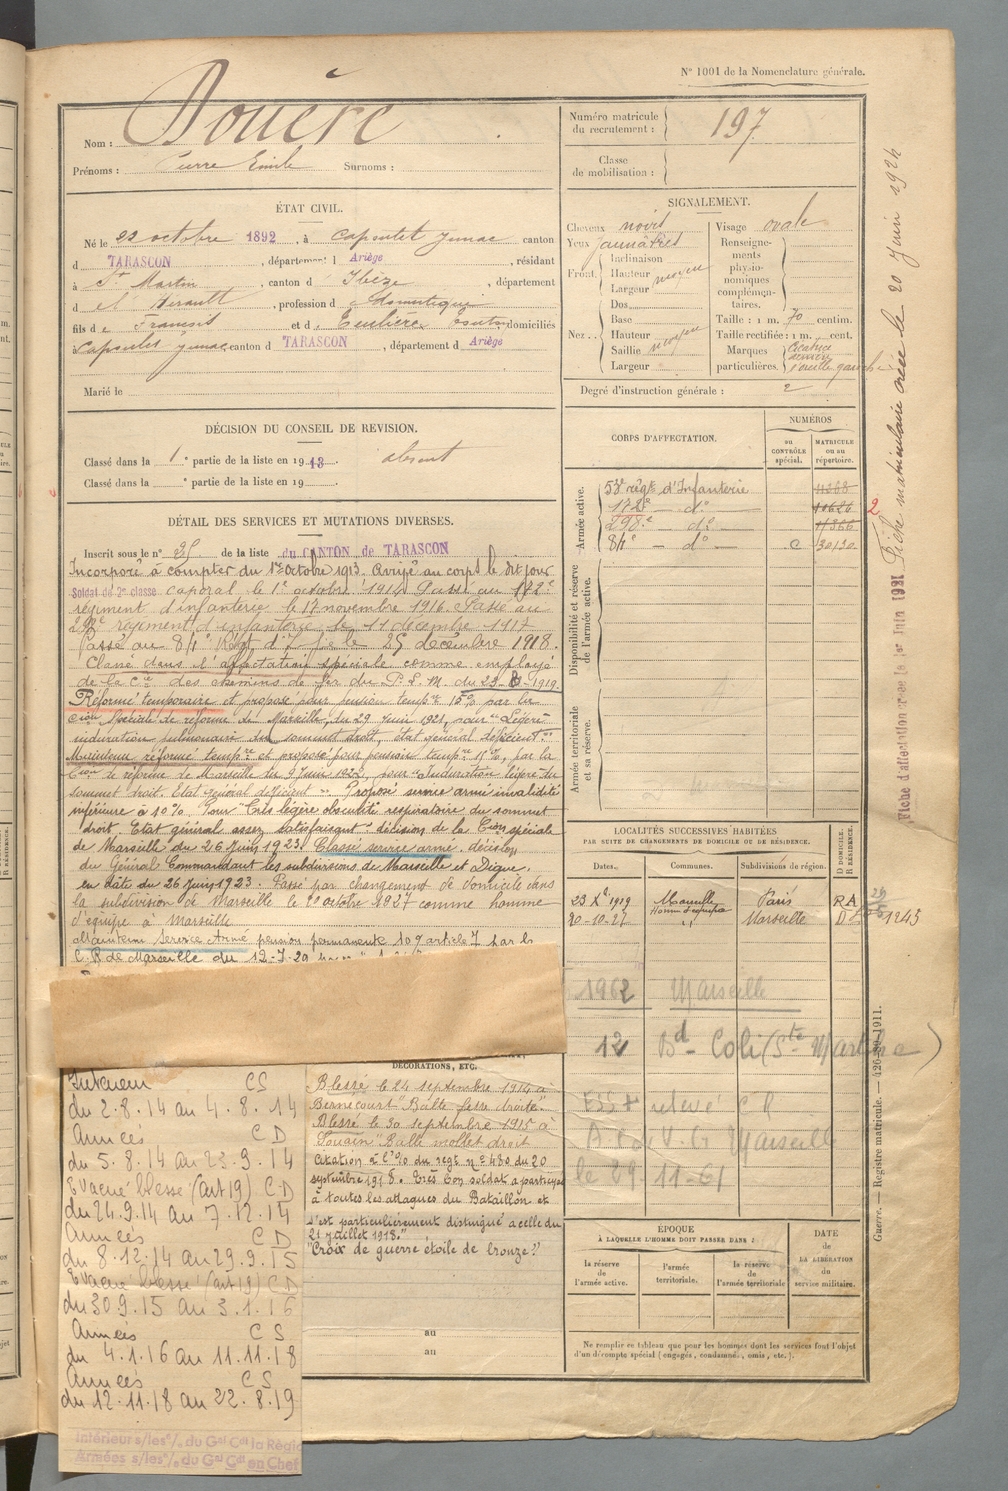 N° 1001 de la Nomenclature générale.
Nom : Douère
Prénoms : Pierre Emile Surnoms :
Numéro matricule du recrutement : 197
Classe de mobilisation :
ÉTAT CIVIL.
Né le 22 octobre 1892, à Capoulet Junac canton
d TARASCON, département d Ariège, résidant
à St Martin, canton d, département
d e l'Hérault, profession d e Domestique
fils d e François et d domiciliés
à Capoulet Junac canton d TARASCON, département d Ariège
Marié le
SIGNALEMENT.
Cheveux noirs
Yeux jaunâtres
Front. Inclinaison
Hauteur moyen
Largeur
Nez.. Dos
Base
Hauteur moyen
Saillie moyen
Largeur
Visage ovale
Renseignements physionomiques complémentaires.
Taille : 1 m. 70 centim.
Taille rectifiée : 1 m. cent.
Marques particulières. Cicatrice l'oreille gauche
Degré d'instruction générale : 2
DÉCISION DU CONSEIL DE REVISION.
Classé dans la 1e partie de la liste en 1913. absent
Classé dans la e partie de la liste en 19
CORPS D'AFFECTATION.
NUMÉROS
au CONTRÔLE spécial.
MATRICULE ou au répertoire.
Armée active.
53e régt d'Infanterie
172e — do —
298.e — do —
8/1e — do — C 30130
Disponibilité et réserve de l'armée active.
Armée territoriale et sa réserve.
DÉTAIL DES SERVICES ET MUTATIONS DIVERSES.
Inscrit sous le n° 25 de la liste du CANTON de TARASCON
Incorporé à compter du 1er octobre 1913. Arrivé au corps le dit jour
Soldat de 2e classe caporal le 1er octobre 1914 Passé au 172e
régiment d'infanterie le 17 novembre 1916. Passé au
298e régiment d'infanterie le 11 décembre 1917
Passé au 8/1e Régt d' le 25 décembre 1918.
Classé dans l'affectation spéciale comme employé
de la Cie des chemins de fer du P. L. M. du 23-8-1919.
Réformé temporaire et proposé pour pension tempre 15% par la
Cion Spéciale de réforme de Marseille, du 29 juin 1921, pour "Légère
induration pulmonaire du sommet droit, état général déficient."
Maintenu réformé tempre et proposé pour pension tempre 15%, par la
Cion de réforme de Marseille du 9 juin 1922, pour "Induration légère du
sommet droit. Etat général déficient". Proposé service armé invalidité
inférieure à 10% Pour "Très légère obscurité respiratoire du sommet
droit. Etat général assez satisfaisant". décision de la Cion spéciale
de Marseille du 26 juin 1923. Classé service armé. décision
du Général Commandant les subdivisions de Marseille et Digne,
en date du 26 juin 1923. Passé par changement de domicile dans
la subdivision de Marseille le 20 octobre 1927 comme homme
d'équipe à Marseille
Maintenu Service Armé pension permanente 10% article 7 par la
C.R de Marseille du 12-7-29
LOCALITÉS SUCCESSIVES HABITÉES
PAR SUITE DE CHANGEMENTS DE DOMICILE OU DE RÉSIDENCE.
Dates. Communes. Subdivisions de région. D DOMICILE. R RÉSIDENCE.
23 Xe 1919 Marseille Paris RA
20-10-27 Homme d'équipe " Marseille D 1245
1962 Marseille
12 Bd Coli (Ste Marthe)
relevé
Marseille
le 29-11-61
DÉCORATIONS, ETC.
Blessé le 24 septembre 1914 à
Bernecourt "Balle fesse droite".
Blessé le 30 septembre 1915 à
Souain "Balle mollet droit
Citation à l'o/o du régt n° 480 du 20
septembre 1918. Très bon soldat a participé
à toutes les attaques du Bataillon et
s'est particulièrement distingué à celle du
21 juillet 1918."
"Croix de guerre étoile de bronze."
au
au
Intérieur CS
du 2.8.14 au 4.8.14
Armées CD
du 5.8.14 au 23.9.14
Evacué blessé (art 19) CD
du 24.9.14 au 7.12.14
Armées CD
du 8.12.14 au 29.9.15
Evacué blessé (art 19) CD
du 30.9.15 au 3.1.16
Armées CS
du 4.1.16 au 11.11.18
Armées CS
du 12.11.18 au 22.8.19
Intérieur s/les°/. du Gal Cdt la Régio
Armées s/les°/. du Gal Cdt en Chef
ÉPOQUE
À LAQUELLE L'HOMME DOIT PASSER DANS :
la réserve de l'armée active.
l'armée territoriale.
la réserve de l'armée territoriale
DATE de LA LIBÉRATION du service militaire.
Ne remplir ce tableau que pour les hommes dont les services font l'objet
d'un décompte spécial (engagés, condamné, omis, etc.).
Guerre. — Registre matricule. — 426-30-1911.
Fiche matriculaire créée le 20 Juin 1924
Fiche d'affectation créée le 1er Juin 1921
2